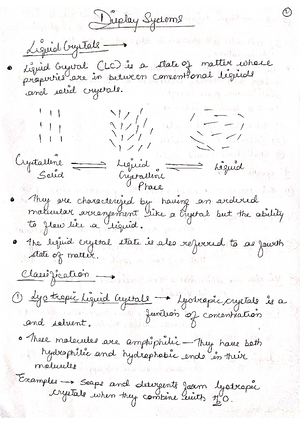 Display Systems
Liquid Crystals →
• Liquid Crystal (LC) is a state of matter whose
properties are in between conventional liquids
and solid crystals.
Crystalline Solid ⇌ Liquid Crystalline Phase ⇌ Liquid
• They are characterized by having an ordered
molecular arrangement like a crystal but the ability
to flow like a liquid.
• The liquid crystal state is also referred to as fourth
state of matter.
Classification →
① Lyotropic Liquid Crystals → Lyotropic crystals is a
function of concentration
and solvent.
• These molecules are amphiphilic — They have both
hydrophilic and hydrophobic ends in their
molecules
Examples → Soaps and detergents form lyotropic
crystals when they combine with H2O.